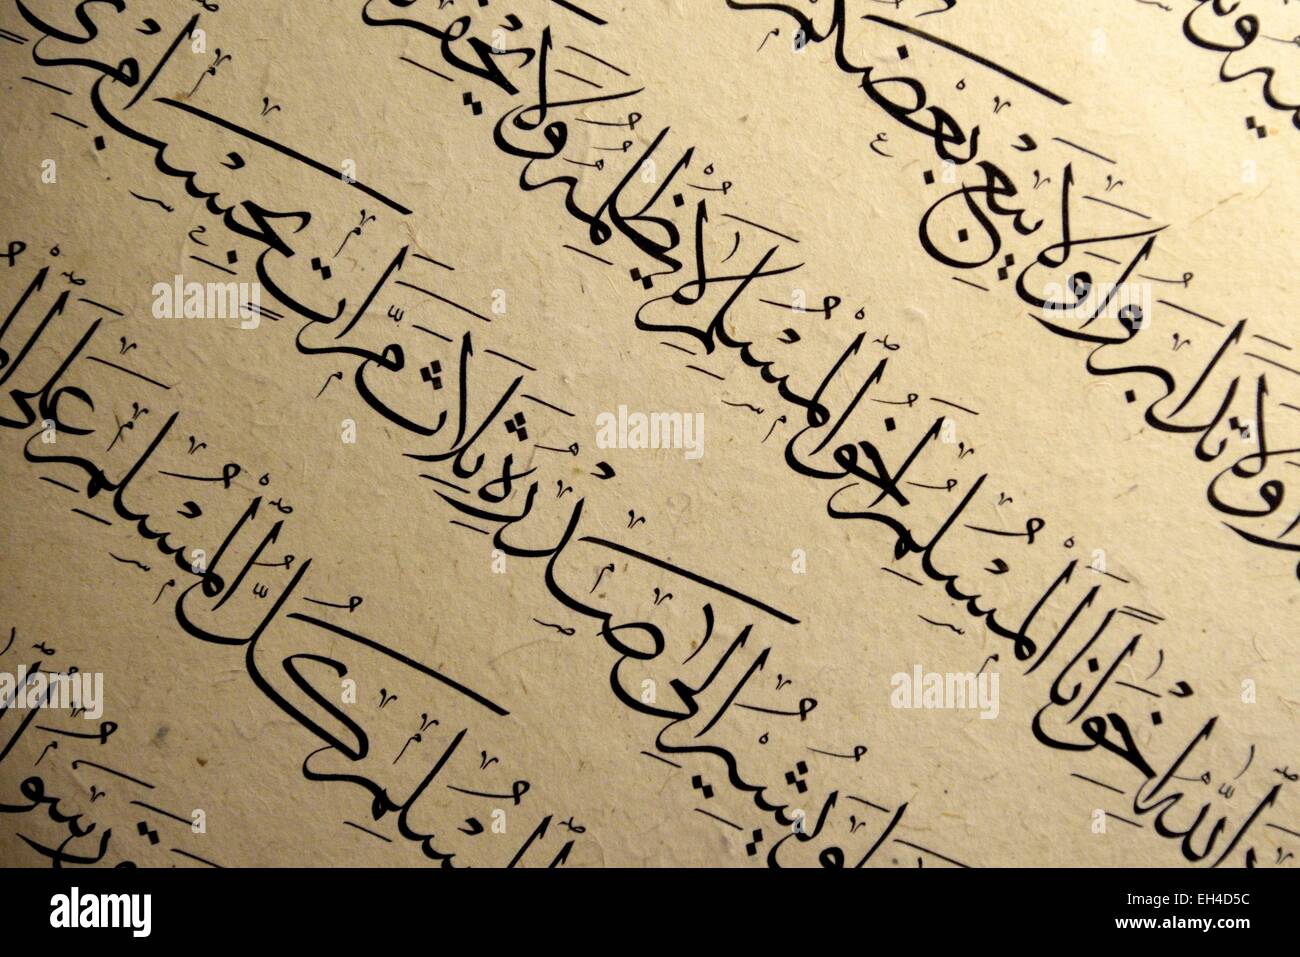 ولا تدابروا ولا يبع بعضكم
الله إخوانا المسلم أخو المسلم لا يظلمه ولا يحقر
ويشير إلى صدره ثلاث مرات بحسب امرئ
المسلم كل المسلم على
رسول
alamy
alamy
Image ID: EH4D5C
www.alamy.com